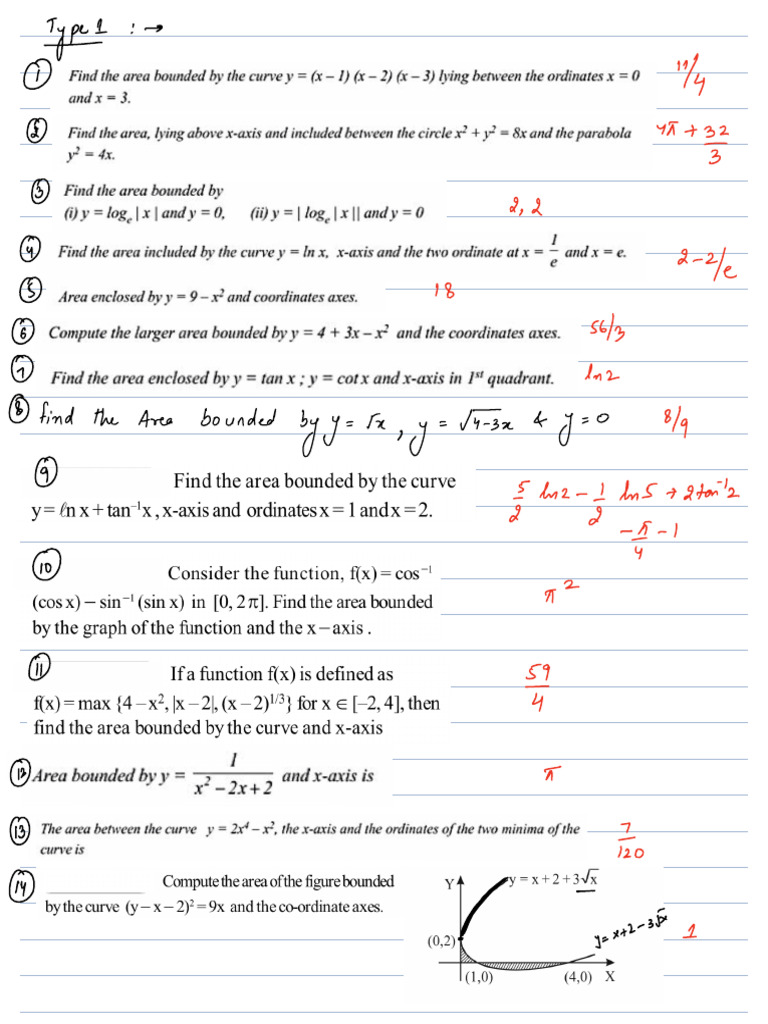 Type 1 : →
① Find the area bounded by the curve y = (x – 1) (x – 2) (x – 3) lying between the ordinates x = 0 11/4
and x = 3.
② Find the area, lying above x-axis and included between the circle x² + y² = 8x and the parabola 4π + 32/3
y² = 4x.
③ Find the area bounded by
(i) y = logₑ | x | and y = 0, (ii) y = | logₑ | x || and y = 0 2, 2
④ Find the area included by the curve y = ln x, x-axis and the two ordinate at x = 1/e and x = e. 2 – 2/e
⑤ Area enclosed by y = 9 – x² and coordinates axes. 18
⑥ Compute the larger area bounded by y = 4 + 3x – x² and the coordinates axes. 56/3
⑦ Find the area enclosed by y = tan x ; y = cot x and x-axis in 1ˢᵗ quadrant. ln 2
⑧ find the Area bounded by y = √x, y = √4-3x & y = 0 8/9
⑨ Find the area bounded by the curve
y = ℓn x + tan⁻¹x , x-axis and ordinates x = 1 and x = 2. 5/2 ln2 – 1/2 ln5 + 2tan⁻¹2
– π/4 – 1
⑩ Consider the function, f(x) = cos⁻¹
(cos x) – sin⁻¹ (sin x) in [0, 2π]. Find the area bounded π²
by the graph of the function and the x – axis .
⑪ If a function f(x) is defined as 59/4
f(x) = max {4 – x², |x – 2|, (x – 2)¹/³} for x ∈ [–2, 4], then
find the area bounded by the curve and x-axis
⑫ Area bounded by y = 1/(x² – 2x + 2) and x-axis is π
⑬ The area between the curve y = 2x⁴ – x², the x-axis and the ordinates of the two minima of the 7/120
curve is
⑭ Compute the area of the figure bounded
by the curve (y – x – 2)² = 9x and the co-ordinate axes.
Y y = x + 2 + 3√x
(0,2) y = x+2–3√x 1
(1,0) (4,0) X